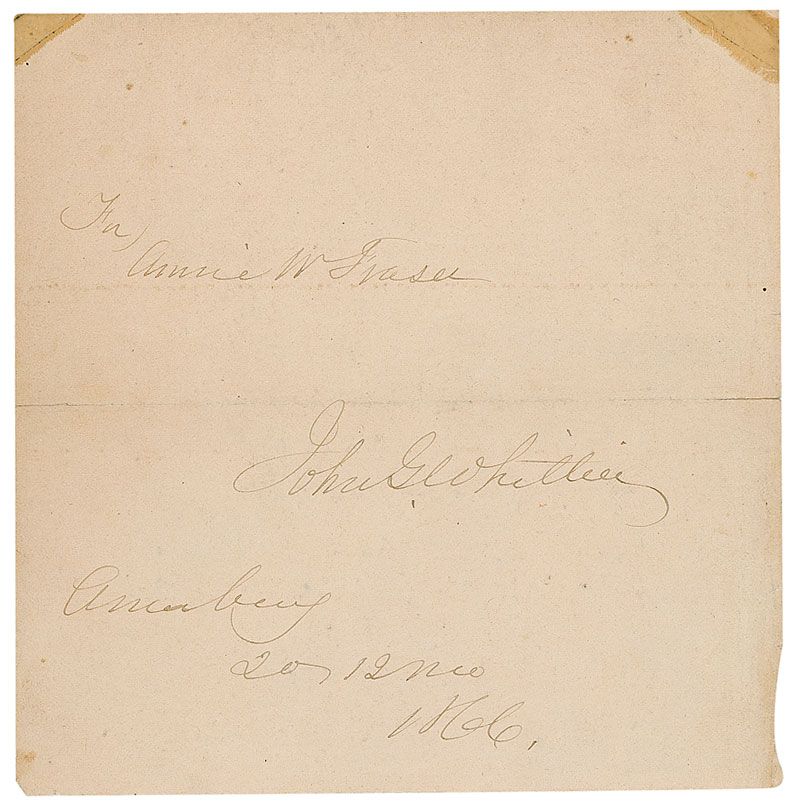 For
Annie W Fraser
John G. Whittier
Amesbury
20, 12 mo
1866.